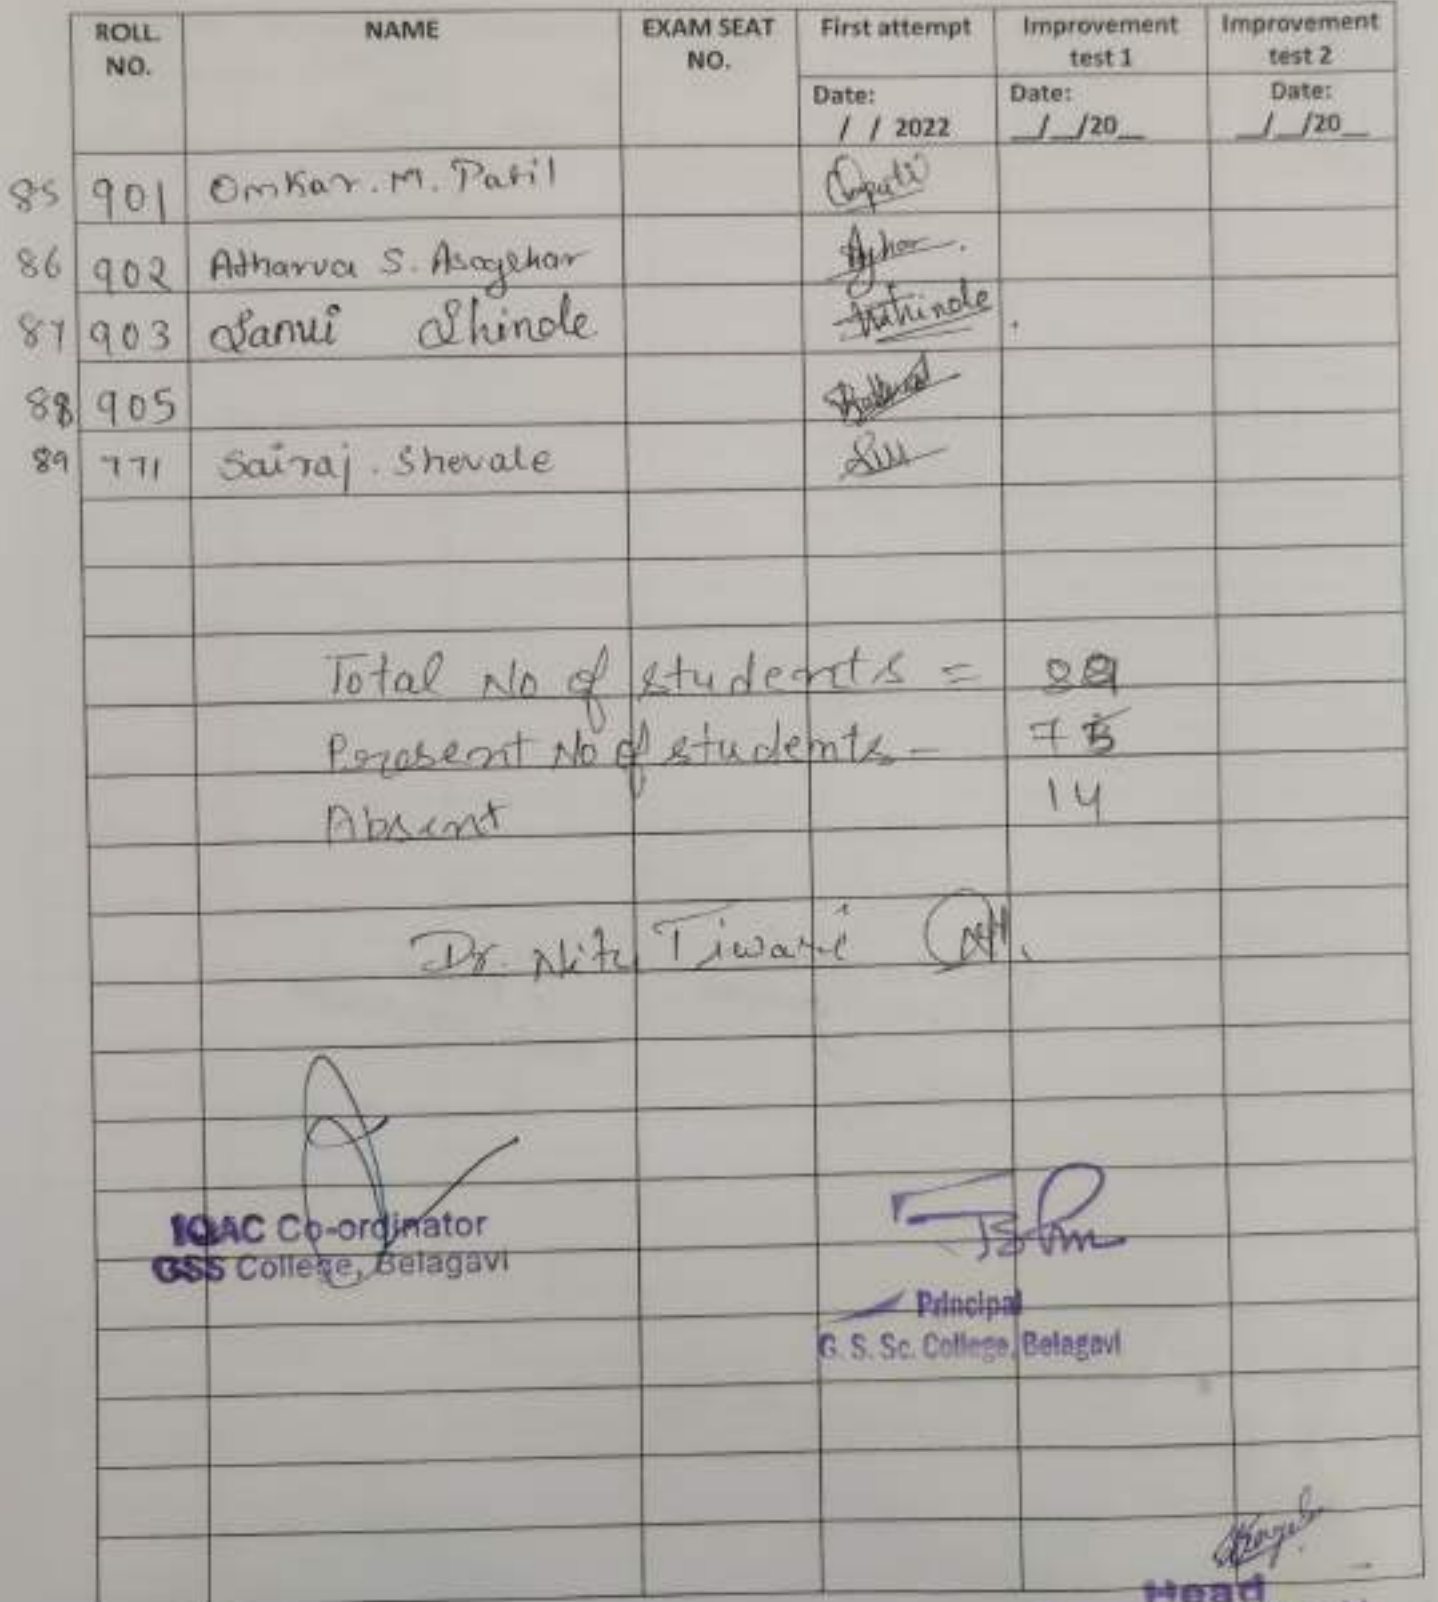 ROLL NO. NAME EXAM SEAT NO. First attempt Improvement test 1 Improvement test 2
Date: / / 2022 Date: __/__/20__ Date: __/__/20__
85 901 Omkar. M. Patil
86 902 Atharva S. Asogekar
87 903 Sanvi Shinde
88 905
89 771 Sairaj. Shevale
Total No of students = 89
Peresent No of students - 75
Absent 14
Dr. Tiwari
IQAC Co-ordinator
GSS College, Belagavi
Principal
G. S. Sc. College, Belagavi
Head